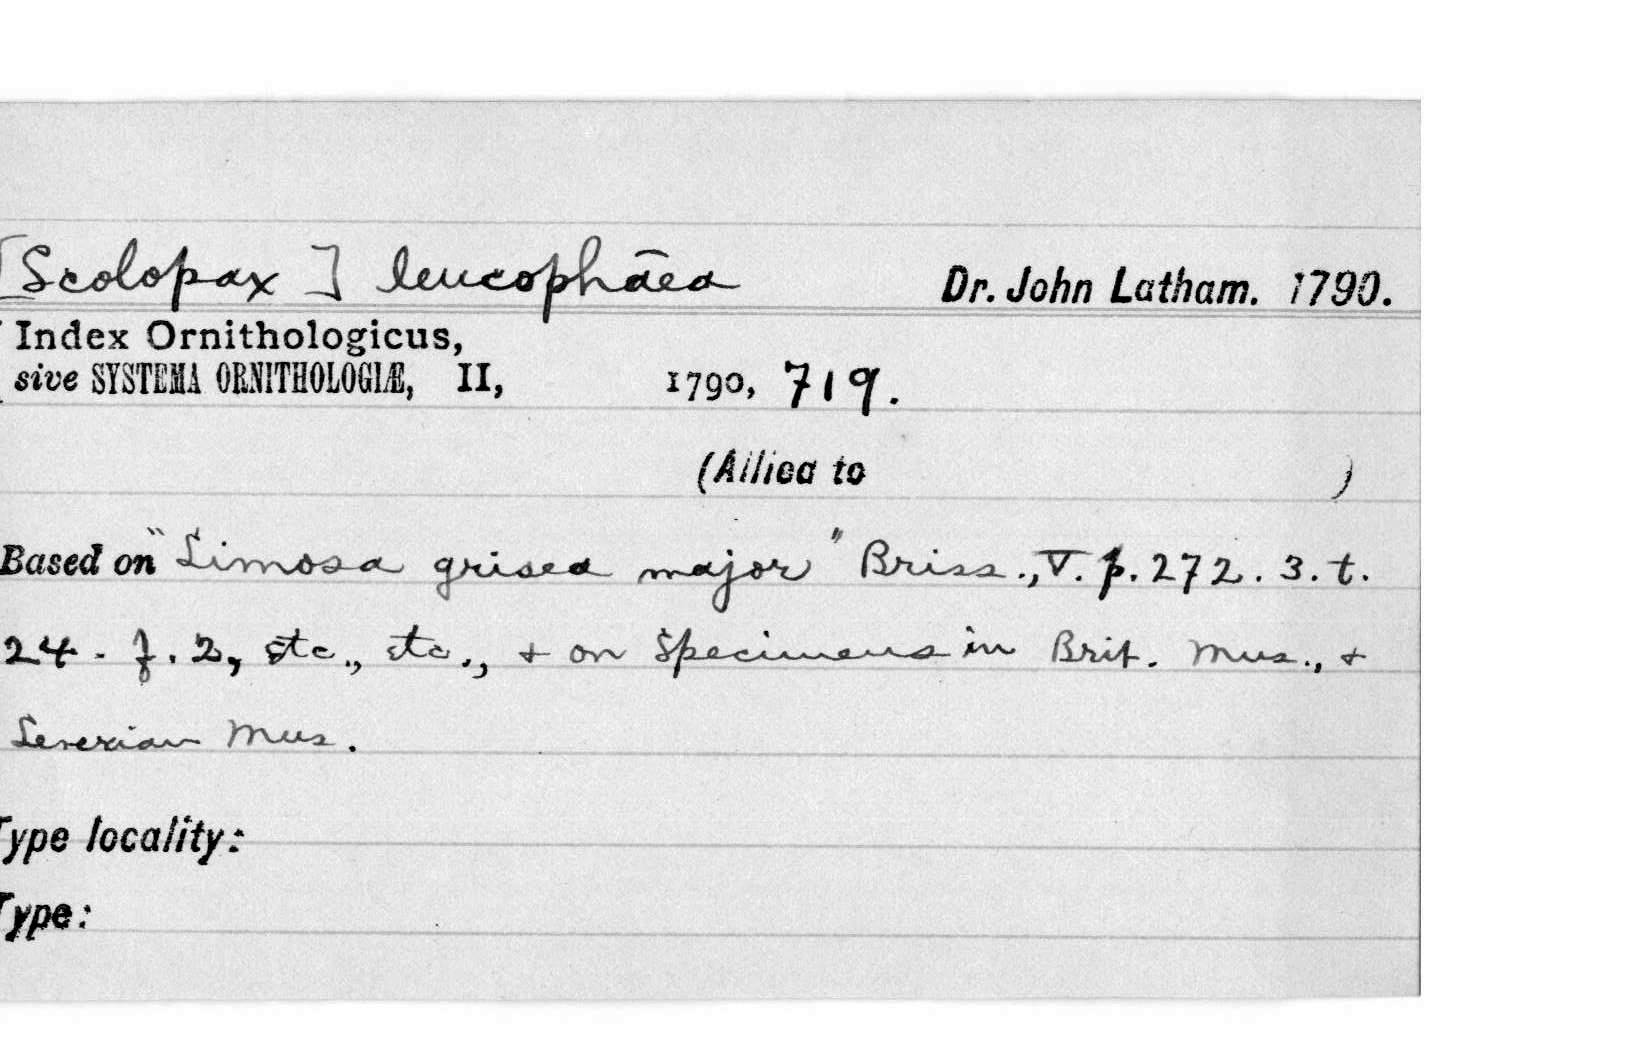 [Scolopax] leucophāea Dr. John Latham. 1790.
Index Ornithologicus,
sive SYSTEMA ORNITHOLOGIÆ, II, 1790, 719.
(Allied to )
Based on "Limosa grisea major" Briss., V. p. 272. 3. t.
24. f. 2, etc., etc., + on Specimens in Brit. Mus., +
Leverian Mus.
Type locality:
Type: